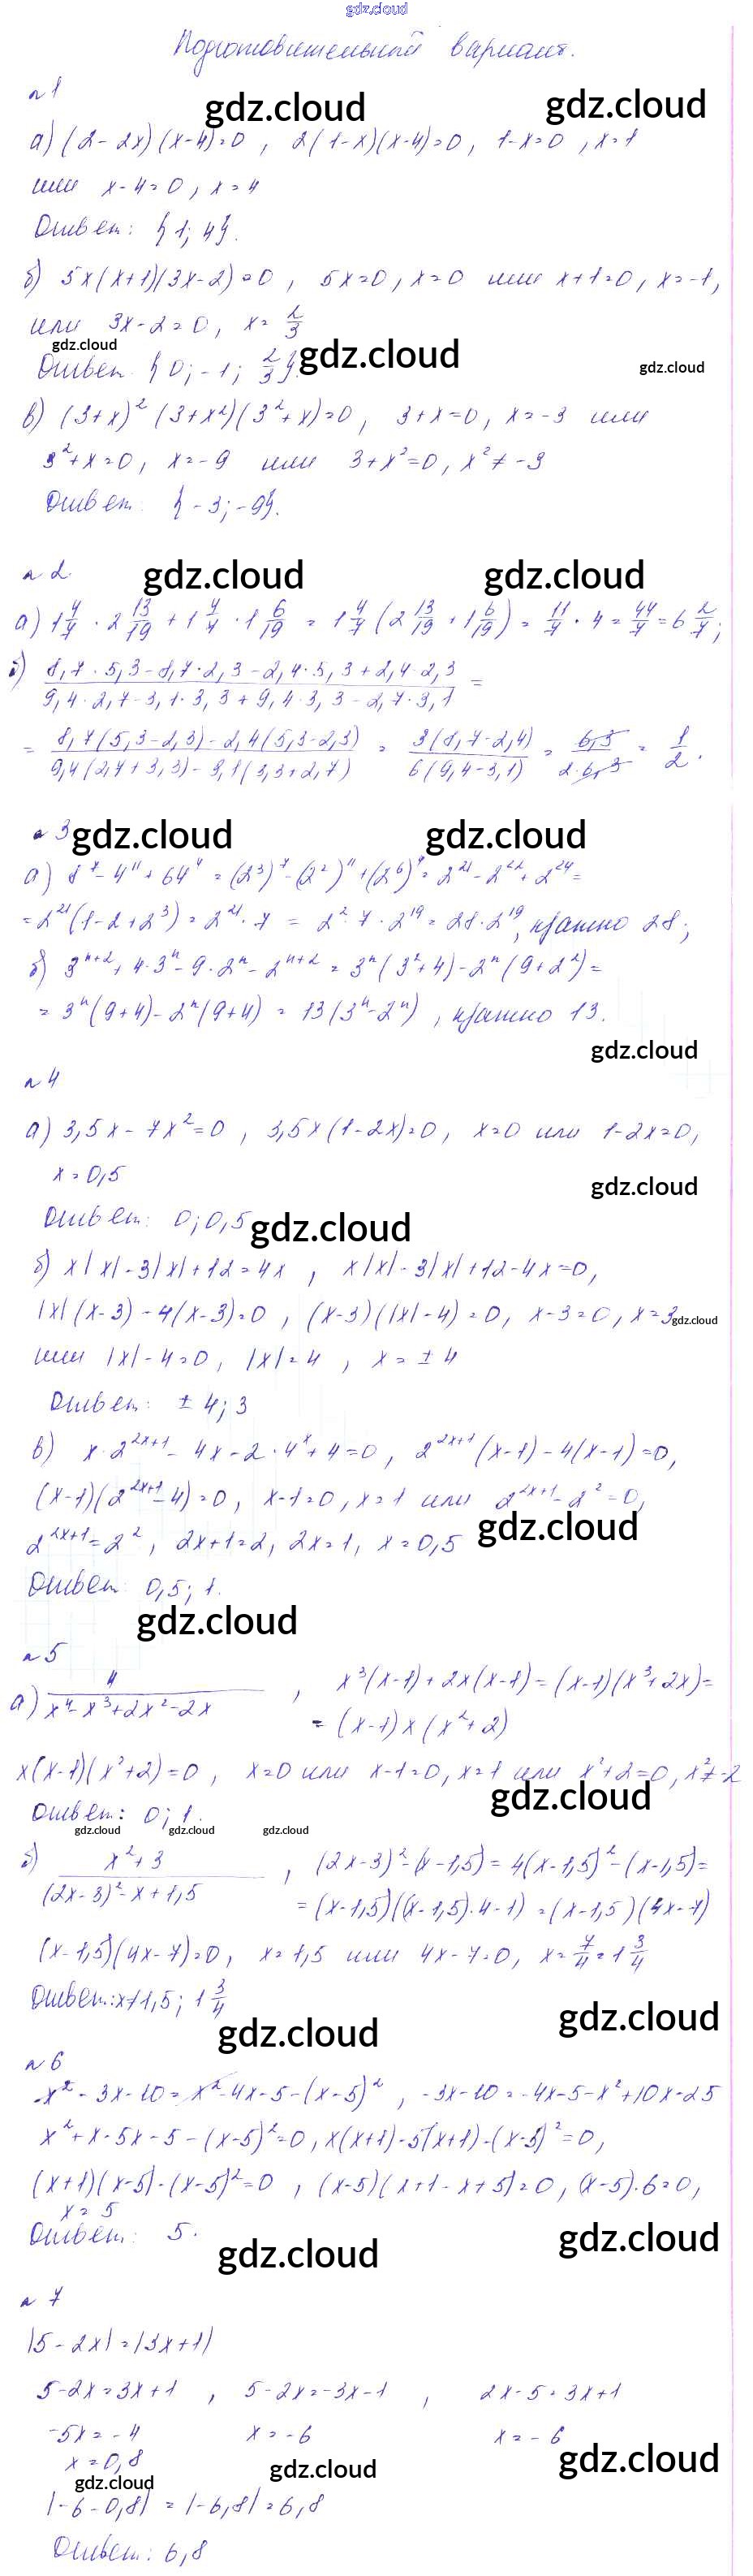 gdz.cloud
Подготовительный вариант.
№1
gdz.cloud gdz.cloud
а) (2-2x)(x-4)=0, 2(1-x)(x-4)=0, 1-x=0, x=1
или x-4=0, x=4
Ответ: {1; 4}.
б) 5x(x+1)(3x-2)=0, 5x=0, x=0 или x+1=0, x=-1,
или 3x-2=0, x=2/3
gdz.cloud gdz.cloud gdz.cloud
Ответ. {0; -1; 2/3}.
в) (3+x)²(3+x²)(3²+x)=0, 3+x=0, x=-3 или
3²+x=0, x=-9 или 3+x²=0, x²≠-3
Ответ: {-3; -9}.
№2. gdz.cloud gdz.cloud
а) 1 4/7 · 2 13/19 + 1 4/7 · 1 6/19 = 1 4/7 (2 13/19 + 1 6/19) = 11/7 · 4 = 44/7 = 6 2/7;
б) (8,7·5,3-8,7·2,3-2,4·5,3+2,4·2,3)/(9,4·2,7-3,1·3,3+9,4·3,3-2,7·3,1) =
= (8,7(5,3-2,3)-2,4(5,3-2,3))/(9,4(2,7+3,3)-3,1(3,3+2,7)) = 3(8,7-2,4)/6(9,4-3,1) = 6,3/2·6,3 = 1/2.
№3 gdz.cloud gdz.cloud
а) 8⁷-4¹¹+64⁴=(2³)⁷-(2²)¹¹+(2⁶)⁴=2²¹-2²²+2²⁴=
=2²¹(1-2+2³)=2²¹·7=2²·7·2¹⁹=28·2¹⁹, кратно 28;
б) 3ⁿ⁺²+4·3ⁿ-9·2ⁿ-2ⁿ⁺²=3ⁿ(3²+4)-2ⁿ(9+2²)=
=3ⁿ(9+4)-2ⁿ(9+4)=13(3ⁿ-2ⁿ), кратно 13.
gdz.cloud
№4
а) 3,5x-7x²=0, 3,5x(1-2x)=0, x=0 или 1-2x=0,
x=0,5
gdz.cloud
Ответ: 0; 0,5 gdz.cloud
б) x|x|-3|x|+12=4x, x|x|-3|x|+12-4x=0,
|x|(x-3)-4(x-3)=0, (x-3)(|x|-4)=0, x-3=0, x=3 gdz.cloud
или |x|-4=0, |x|=4, x=±4
Ответ: ±4; 3
в) x·2²ˣ⁺¹-4x-2·4ˣ+4=0, 2²ˣ⁺¹(x-1)-4(x-1)=0,
(x-1)(2²ˣ⁺¹-4)=0, x-1=0, x=1 или 2²ˣ⁺¹-2²=0,
2²ˣ⁺¹=2², 2x+1=2, 2x=1, x=0,5 gdz.cloud
Ответ: 0,5; 1.
gdz.cloud
№5
а) 4/(x⁴-x³+2x²-2x), x³(x-1)+2x(x-1)=(x-1)(x³+2x)=
=(x-1)x(x²+2)
x(x-1)(x²+2)=0, x=0 или x-1=0, x=1 или x²+2=0, x²≠-2
gdz.cloud
Ответ: 0; 1.
gdz.cloud gdz.cloud gdz.cloud
б) (x²+3)/((2x-3)²-x+1,5), (2x-3)²-(x-1,5)=4(x-1,5)²-(x-1,5)=
=(x-1,5)((x-1,5)·4-1)=(x-1,5)(4x-7)
(x-1,5)(4x-7)=0, x=1,5 или 4x-7=0, x=7/4=1 3/4
Ответ: x≠1,5; 1 3/4
gdz.cloud gdz.cloud
№6
-x²-3x-10=x²-4x-5-(x-5)², -3x-10=-4x-5-x²+10x-25
x²+x-5x-5-(x-5)²=0, x(x+1)-5(x+1)-(x-5)²=0,
(x+1)(x-5)-(x-5)²=0, (x-5)(x+1-x+5)=0, (x-5)·6=0,
x=5
Ответ: 5.
gdz.cloud gdz.cloud
№7
|5-2x|=|3x+1|
5-2x=3x+1, 5-2x=-3x-1, 2x-5=3x+1
-5x=-4 x=-6 x=-6
x=0,8 gdz.cloud
gdz.cloud gdz.cloud
|-6-0,8|=|-6,8|=6,8
Ответ: 6,8